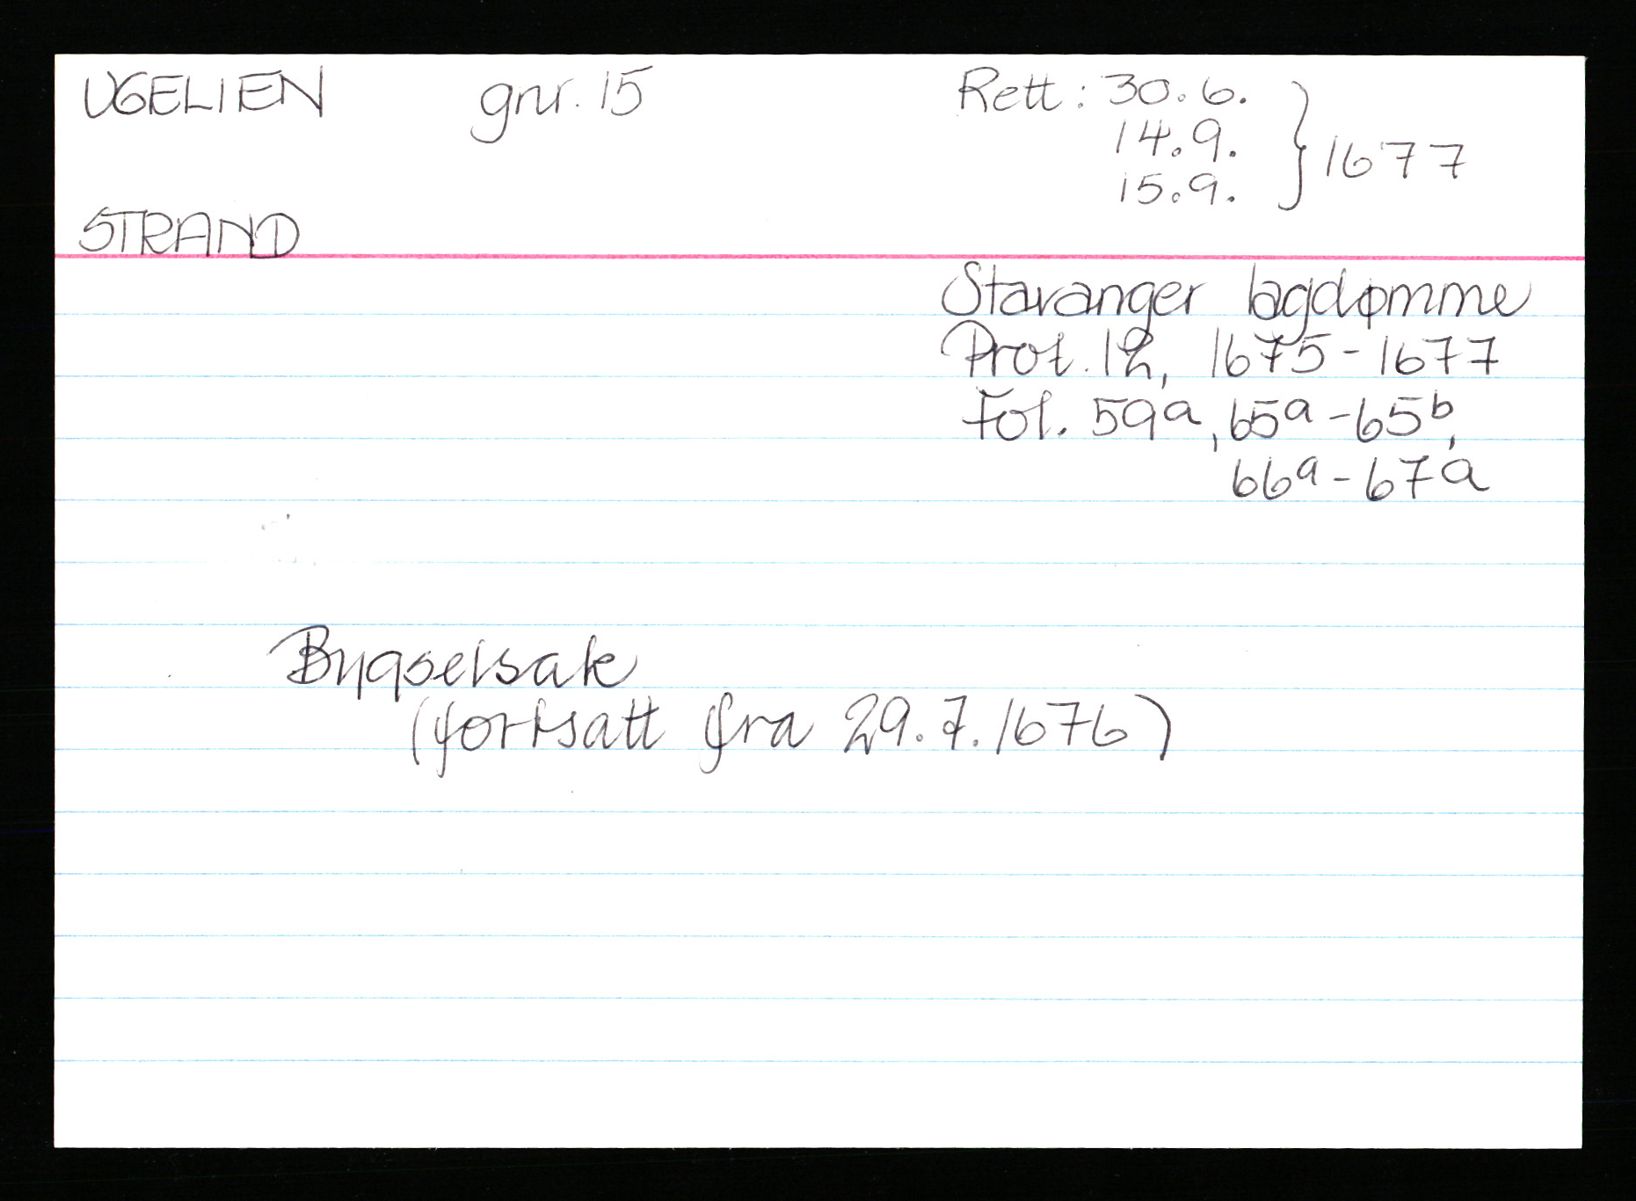 UGELIEN gnr. 15 Rett: 30.6.
14.9. } 1677
15.9.
STRAND
Stavanger lagdømme
Prot. 12, 1675-1677
Fol. 59a, 65a-65b,
66a-67a
Bygselsak
(fortsatt fra 29.7.1676)